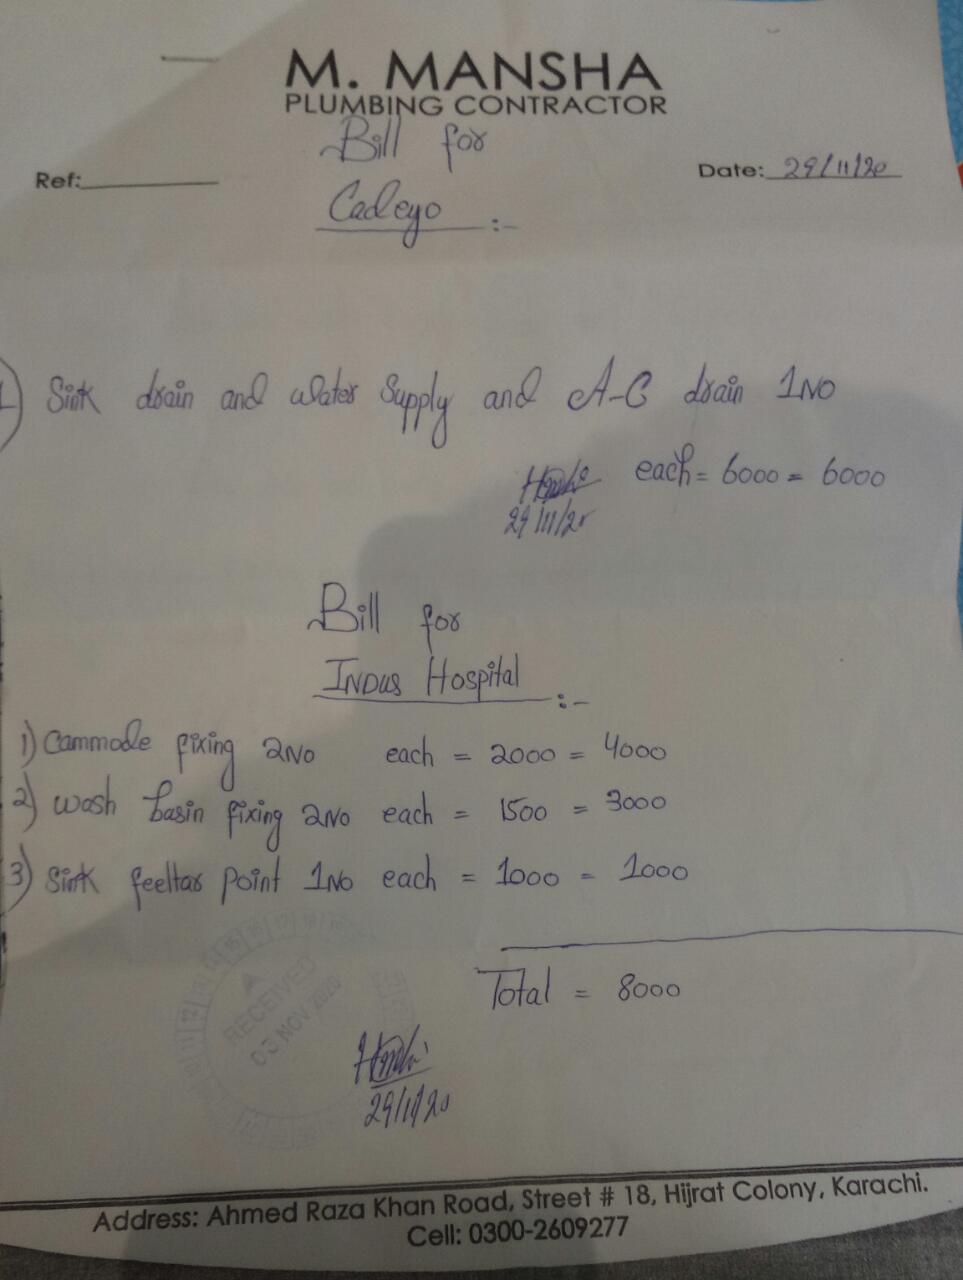 M. MANSHA
PLUMBING CONTRACTOR
Bill for
Ref:
Date: 29/11/20
Cadeyo :-
1) Sink drain and water Supply and A-C drain 1NO
each = 6000 = 6000
29/11/20
Bill for
INDUS Hospital :-
1) Cammode fixing 2NO each = 2000 = 4000
2) wash basin fixing 2NO each = 1500 = 3000
3) Sink feeltar point 1NO each = 1000 = 1000
Total = 8000
RECEIVED
03 NOV 2020
29/11/20
Address: Ahmed Raza Khan Road, Street # 18, Hijrat Colony, Karachi.
Cell: 0300-2609277